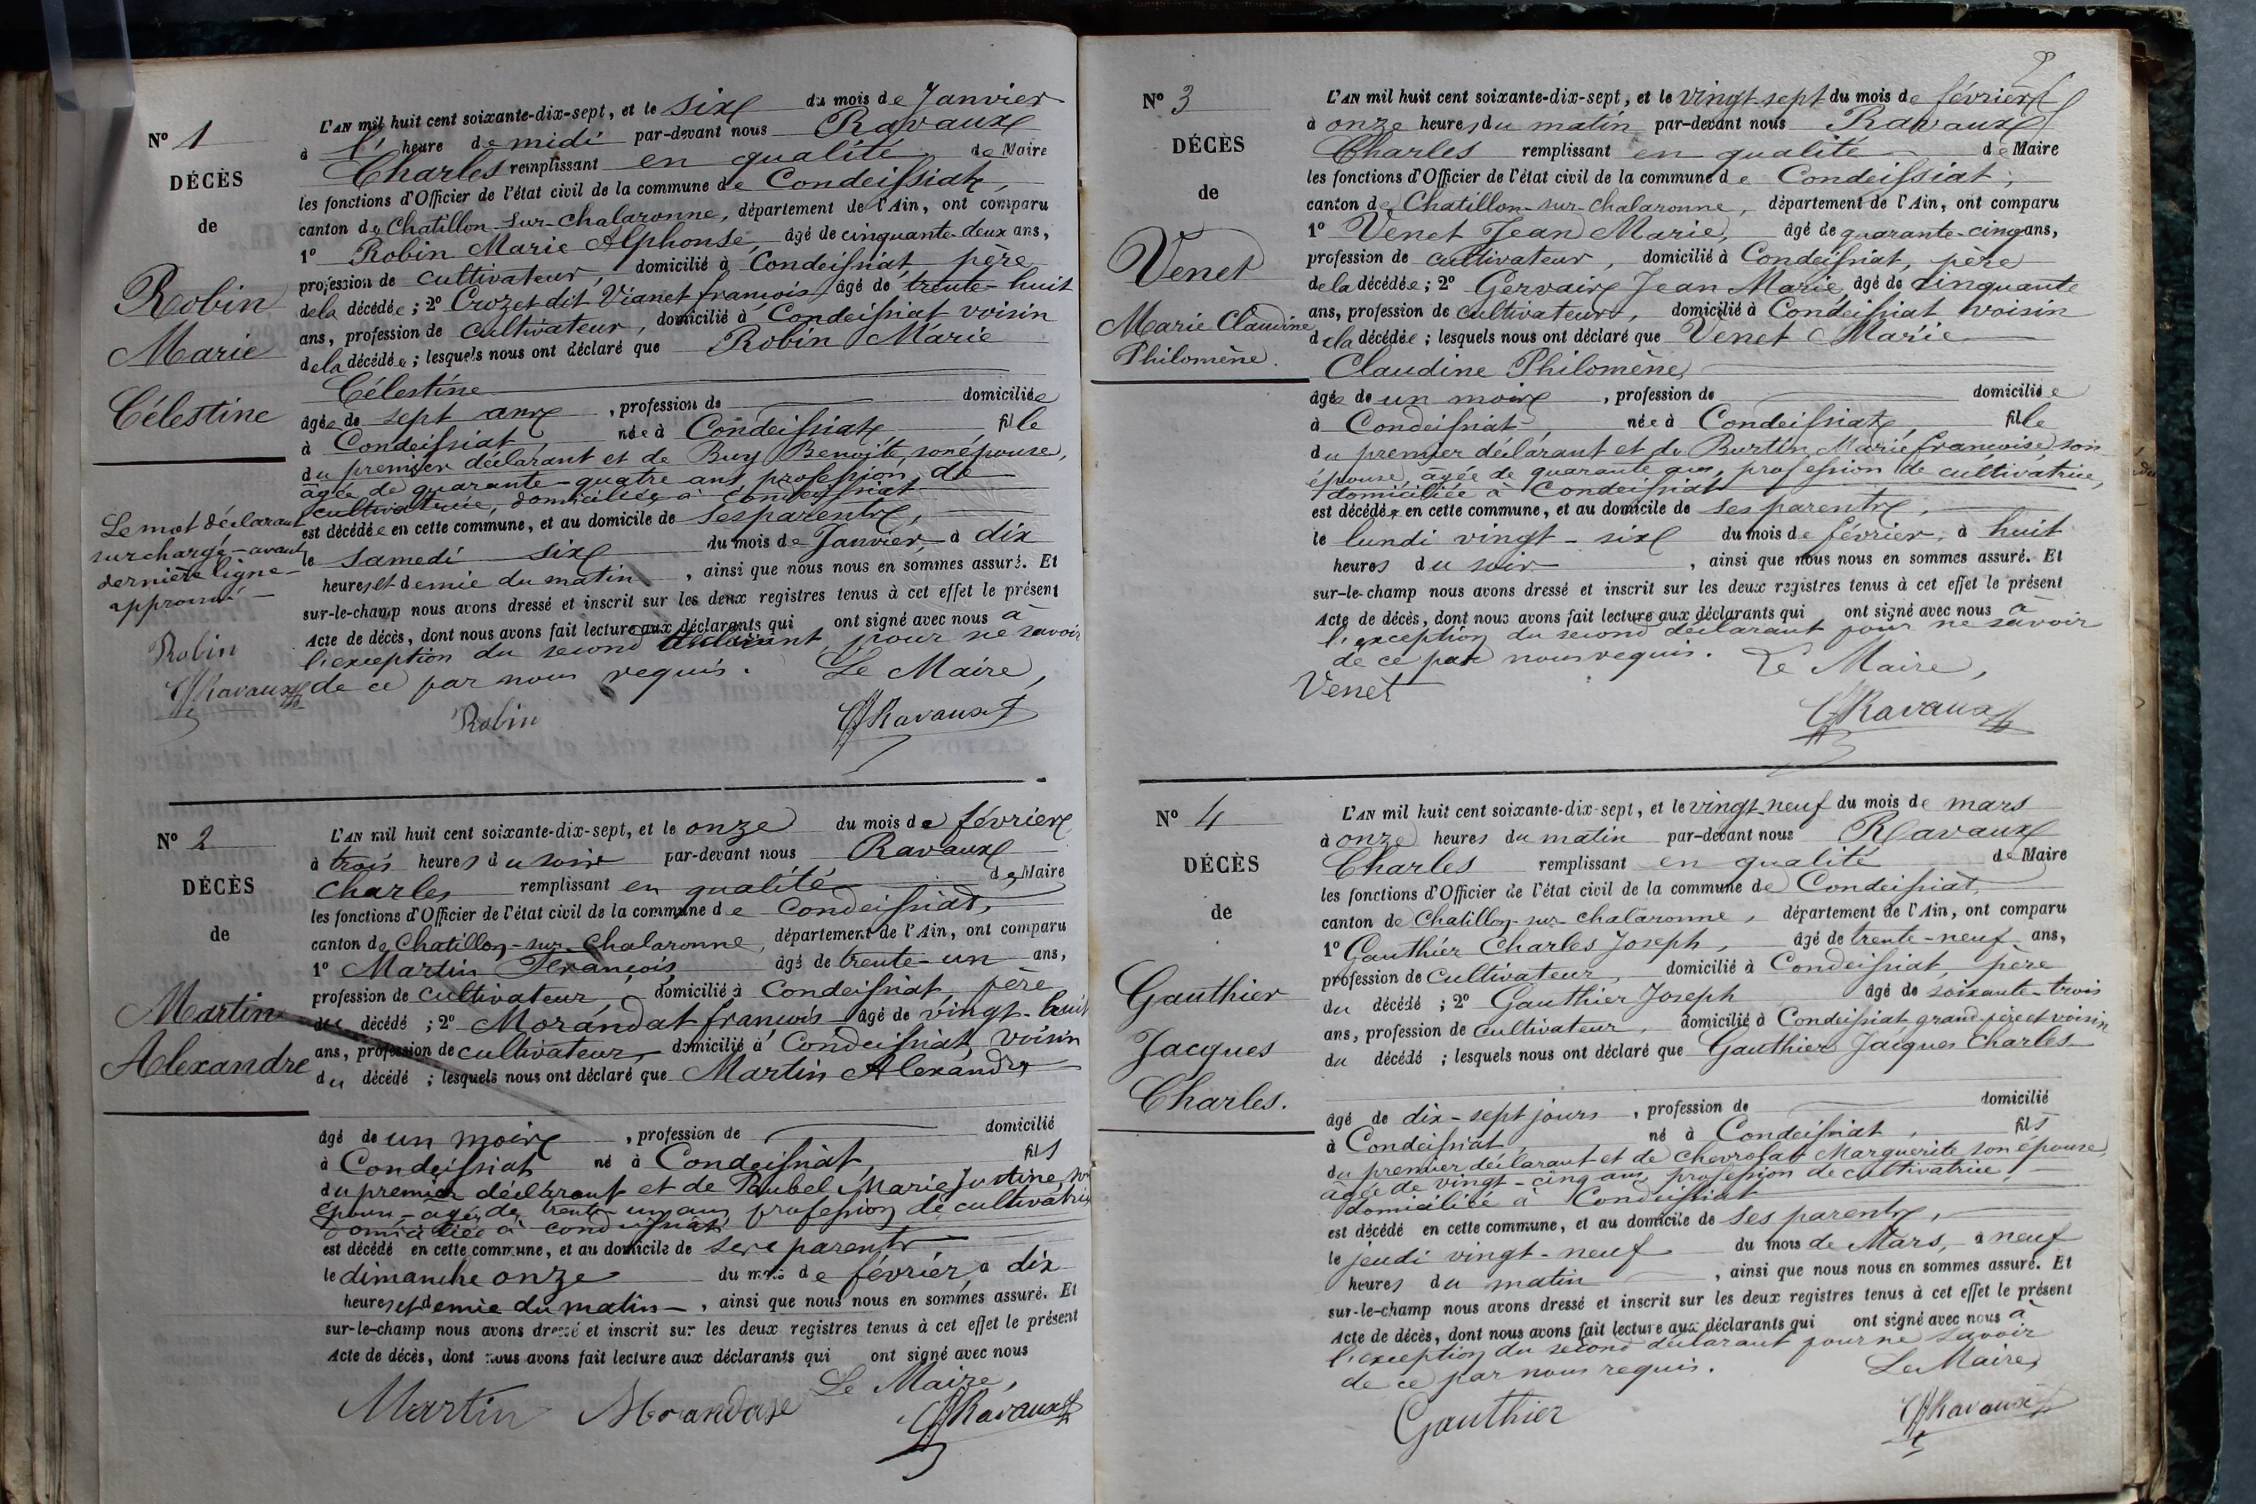 Nº 1
DÉCÈS
de
Robin
Marie
Célestine
Le mot déclarant
surchargé - avant
dernière ligne -
approuvé -
Robin
Ravaux
L'AN mil huit cent soixante-dix-sept, et le six du mois de Janvier
à l' heure de midi par-devant nous Ravaux
Charles remplissant en qualité de Maire
les fonctions d'Officier de l'état civil de la commune de Condeissiat,
canton de Chatillon-sur-chalaronne, département de l'Ain, ont comparu
1º Robin Marie Alphonse, âgé de cinquante-deux ans,
profession de cultivateur, domicilié à Condeissiat, père
de la décédée ; 2º Crozet dit Vianet françois âgé de trente-huit
ans, profession de cultivateur, domicilié à Condeissiat voisin
de la décédée ; lesquels nous ont déclaré que Robin Marie
Célestine
âgée de sept ans , profession de domiciliée
à Condeissiat, née à Condeissiat, fille
du premier déclarant et de Buy Benoîte, son épouse,
âgée de quarante-quatre ans profession de
cultivatrice, domiciliée à Condeissiat
est décédée en cette commune, et au domicile de ses parents,
le samedi six du mois de Janvier, à dix
heures et demie du matin , ainsi que nous nous en sommes assuré. Et
sur-le-champ nous avons dressé et inscrit sur les deux registres tenus à cet effet le présent
Acte de décès, dont nous avons fait lecture aux déclarants qui ont signé avec nous à
l'exception du second déclarant, pour ne savoir
de ce par nous requis. Le Maire,
Robin Ravaux
Nº 2
DÉCÈS
de
Martin
Alexandre
L'AN mil huit cent soixante-dix-sept, et le onze du mois de février
à trois heures du soir par-devant nous Ravaux
Charles remplissant en qualité de Maire
les fonctions d'Officier de l'état civil de la commune de Condeissiat,
canton de Chatillon-sur-Chalaronne, département de l'Ain, ont comparu
1º Martin François âgé de trente-un ans,
profession de cultivateur, domicilié à Condeissiat, père
du décédé ; 2º Morandat françois âgé de vingt-huit
ans, profession de cultivateur, domicilié à Condeissiat, voisin
du décédé ; lesquels nous ont déclaré que Martin Alexandre
âgé de un mois , profession de domicilié
à Condeissiat né à Condeissiat, fils
du premier déclarant et de Paubel Marie Justine, son
épouse - agée de trente-un ans, profession de cultivatrice
domiciliée à condeissiat
est décédé en cette commune, et au domicile de ses parents
le dimanche onze du mois de février, à dix
heures et demie du matin , ainsi que nous nous en sommes assuré. Et
sur-le-champ nous avons dressé et inscrit sur les deux registres tenus à cet effet le présent
Acte de décès, dont nous avons fait lecture aux déclarants qui ont signé avec nous
Le Maire,
Martin Ravaux
2
Nº 3
DÉCÈS
de
Venet
Marie Claudine
Philomène.
L'AN mil huit cent soixante-dix-sept, et le vingt-sept du mois de février
à onze heures du matin par-devant nous Ravaux
Charles remplissant en qualité de Maire
les fonctions d'Officier de l'état civil de la commune de Condeissiat,
canton de Chatillon-sur-chalaronne, département de l'Ain, ont comparu
1º Venet Jean Marie, âgé de quarante-cinq ans,
profession de cultivateur, domicilié à Condeissiat, père
de la décédée ; 2º Gervais Jean Marie, âgé de cinquante
ans, profession de cultivateur, domicilié à Condeissiat voisin
de la décédée ; lesquels nous ont déclaré que Venet Marie
Claudine Philomène,
âgée de un mois , profession de domiciliée
à Condeissiat, née à Condeissiat, fille
du premier déclarant et de Burtin Marie françoise, son
épouse, âgée de quarante ans, profession de cultivatrice,
domiciliée à Condeissiat
est décédée en cette commune, et au domicile de ses parents,
le lundi vingt-six du mois de février, à huit
heures du soir , ainsi que nous nous en sommes assuré. Et
sur-le-champ nous avons dressé et inscrit sur les deux registres tenus à cet effet le présent
Acte de décès, dont nous avons fait lecture aux déclarants qui ont signé avec nous à
l'exception du second déclarant pour ne savoir
de ce par nous requis. Le Maire,
Venet
Ravaux
Nº 4
DÉCÈS
de
Gauthier
Jacques
Charles.
L'AN mil huit cent soixante-dix-sept, et le vingt-neuf du mois de mars
à onze heures du matin par-devant nous Ravaux
Charles remplissant en qualité de Maire
les fonctions d'Officier de l'état civil de la commune de Condeissiat,
canton de Chatillon-sur-chalaronne, département de l'Ain, ont comparu
1º Gauthier Charles Joseph, âgé de trente-neuf ans,
profession de cultivateur, domicilié à Condeissiat, père
du décédé ; 2º Gauthier Joseph âgé de soixante-trois
ans, profession de cultivateur, domicilié à Condeissiat, grand-père et voisin
du décédé ; lesquels nous ont déclaré que Gauthier Jacques Charles
âgé de dix-sept jours , profession de domicilié
à Condeissiat, né à Condeissiat, fils
du premier déclarant et de Chevrolat Marguerite son épouse,
âgée de vingt-cinq ans, profession de cultivatrice,
domiciliée à Condeissiat
est décédé en cette commune, et au domicile de ses parents,
le jeudi vingt-neuf du mois de Mars, à neuf
heures du matin , ainsi que nous nous en sommes assuré. Et
sur-le-champ nous avons dressé et inscrit sur les deux registres tenus à cet effet le présent
Acte de décès, dont nous avons fait lecture aux déclarants qui ont signé avec nous à
l'exception du second déclarant pour ne savoir
de ce par nous requis. Le Maire,
Gauthier Ravaux